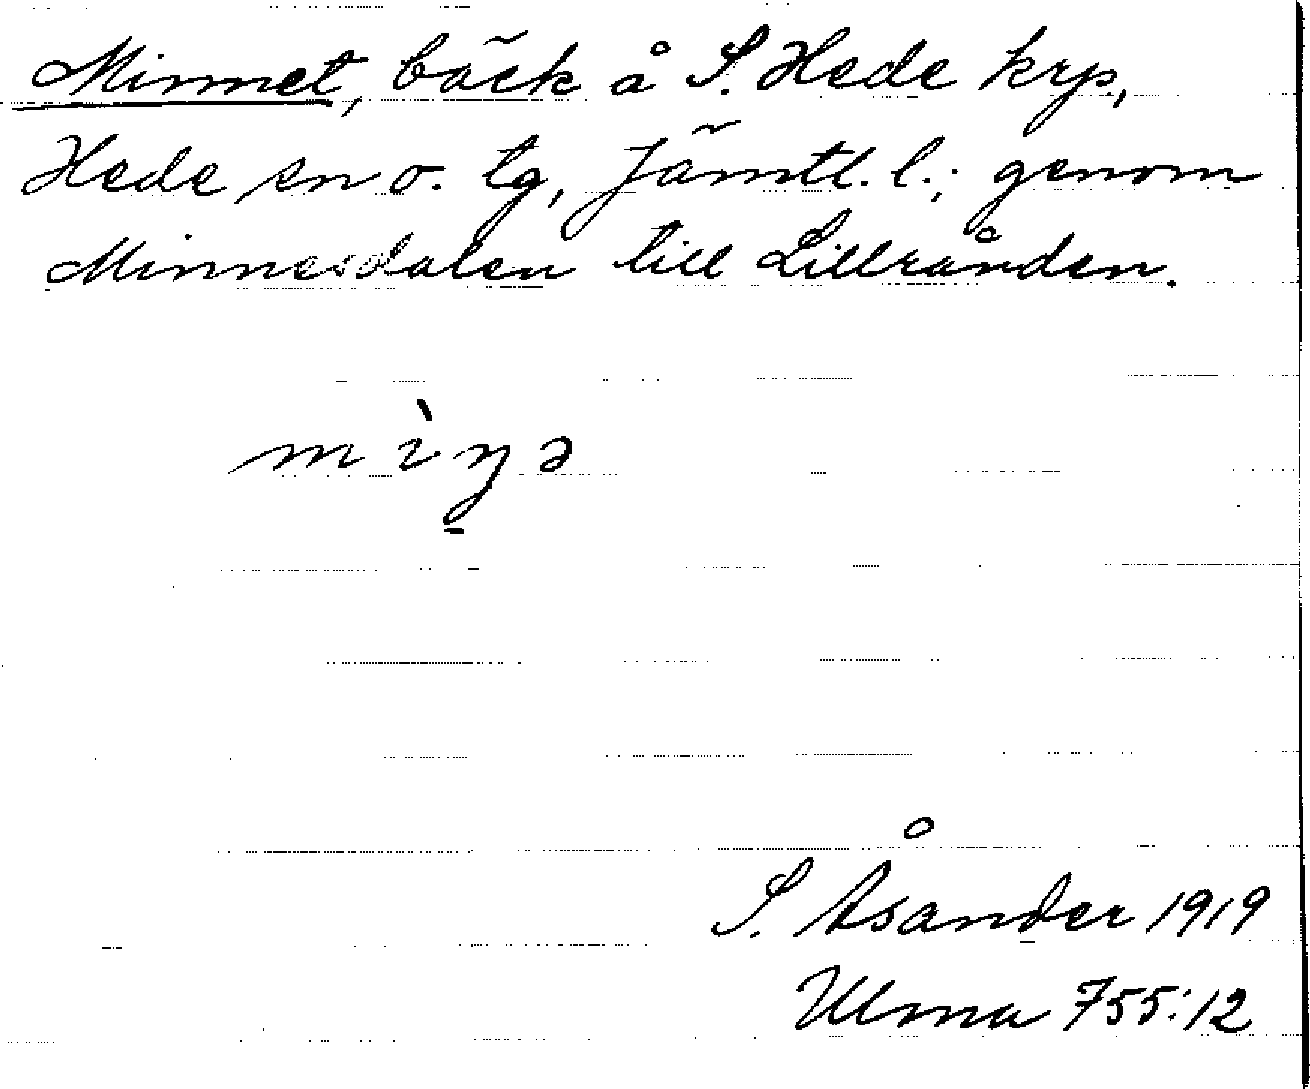 Minnet, bäck å S. Hede krp,
Hede sn o. tg, Jämtl. l.; genom
Minnesdalen till Lillrånden.
mìŋə
S. Åsander 1919
Ulma 755:12